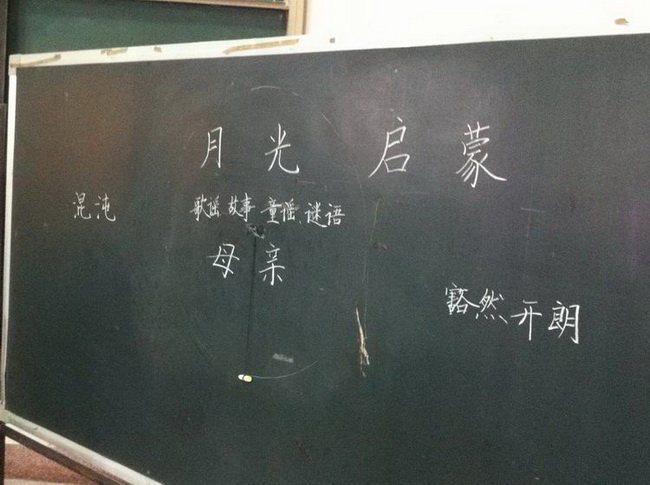 月光 启蒙
混沌 歌谣、故事、童谣、谜语
母亲
豁然开朗